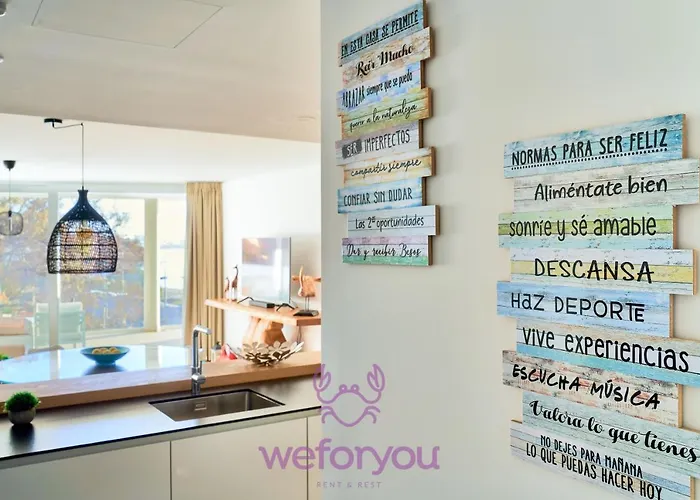 EN ESTA CASA SE PERMITE
Reír Mucho
ABRAZAR siempre que se pueda
querer a la naturaleza
SER IMPERFECTOS
compartir siempre
CONFIAR SIN DUDAR
Las 2as oportunidades
Dar y recibir Besos
NORMAS PARA SER FELIZ
Aliméntate bien
sonríe y sé amable
DESCANSA
HAZ DEPORTE
VIVE experiencias
ESCUCHA MÚSICA
Valora lo que tienes
NO DEJES PARA MAÑANA
LO QUE PUEDAS HACER HOY
weforyou
RENT & REST